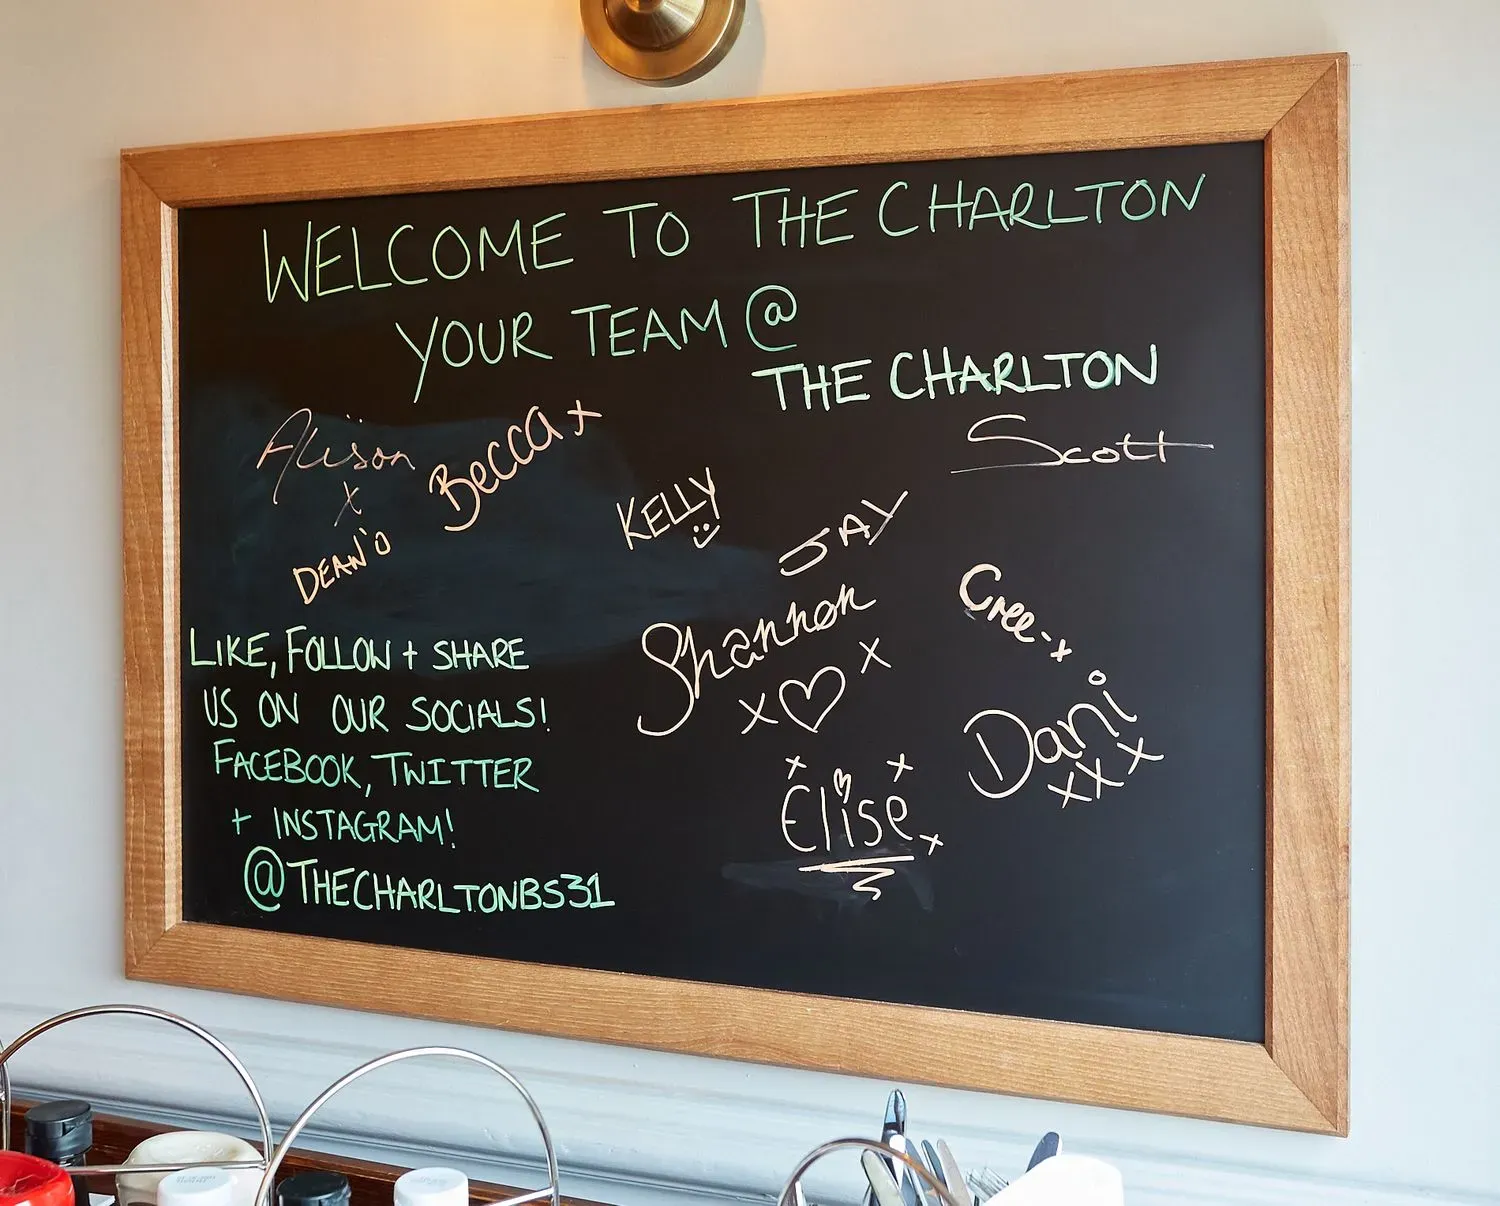 WELCOME TO THE CHARLTON
YOUR TEAM @
THE CHARLTON
Alison
x
Becca x
Scott
KELLY
JAY
DEAN'O
Cree-x
Shannon
x ♡ x
Dani
xxx
Elise
x x x
LIKE, FOLLOW + SHARE
US ON OUR SOCIALS!
FACEBOOK, TWITTER
+ INSTAGRAM!
@THECHARLTONBS31